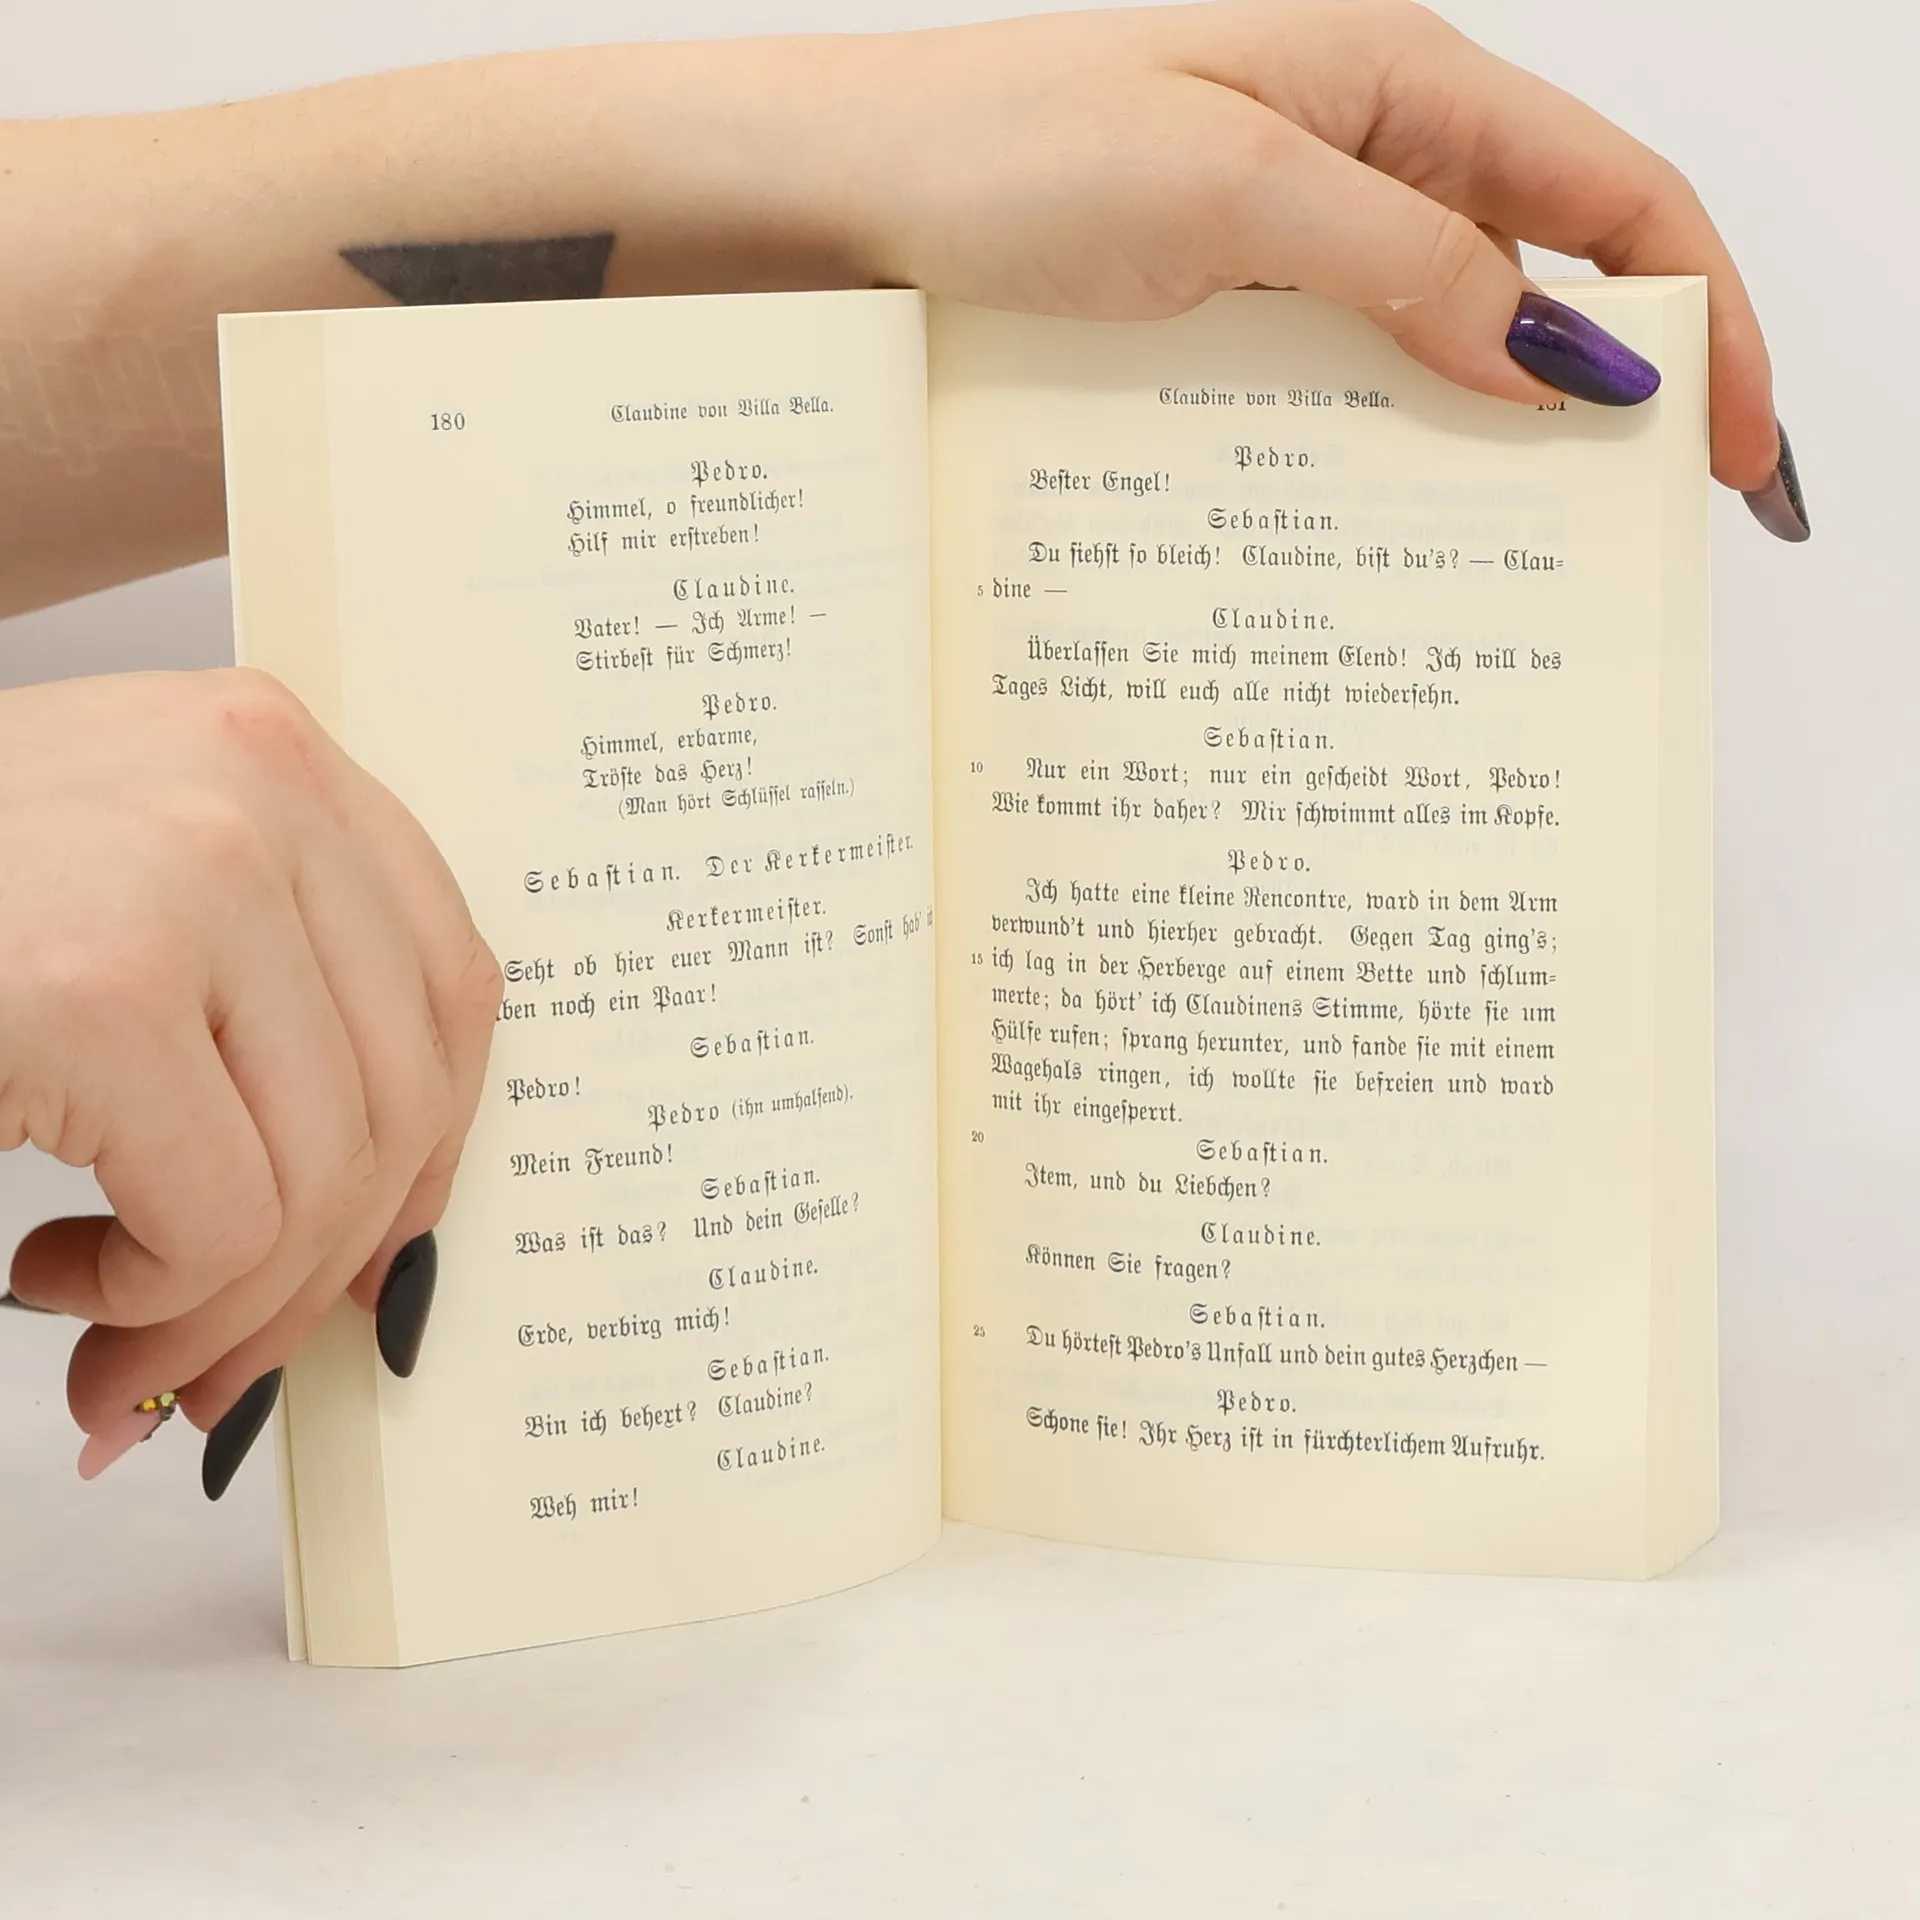 180 Claudine von Villa Bella.
Pedro.
Himmel, o freundlicher!
Hilf mir erſtreben!
Claudine.
Vater! — Ich Arme! —
Stirbeſt für Schmerz!
Pedro.
Himmel, erbarme,
Tröſte das Herz!
(Man hört Schlüſſel raſſeln.)
Sebaſtian. Der Kerkermeiſter.
Kerkermeiſter.
Seht ob hier euer Mann iſt? Sonſt hab'
noch ein Paar!
Sebaſtian.
Pedro!
Pedro (ihn umhalſend).
Mein Freund!
Sebaſtian.
Was iſt das? Und dein Geſelle?
Claudine.
Erde, verbirg mich!
Sebaſtian.
Bin ich behext? Claudine?
Claudine.
Weh mir!
Claudine von Villa Bella.
Pedro.
Beſter Engel!
Sebaſtian.
Du ſiehſt ſo bleich! Claudine, biſt du's? — Clau-
5 dine —
Claudine.
Überlaſſen Sie mich meinem Elend! Ich will des
Tages Licht, will euch alle nicht wiederſehn.
Sebaſtian.
10 Nur ein Wort; nur ein geſcheidt Wort, Pedro!
Wie kommt ihr daher? Mir ſchwimmt alles im Kopfe.
Pedro.
Ich hatte eine kleine Rencontre, ward in dem Arm
verwund't und hierher gebracht. Gegen Tag ging's;
15 ich lag in der Herberge auf einem Bette und ſchlum-
merte; da hört' ich Claudinens Stimme, hörte ſie um
Hülfe rufen; ſprang herunter, und fande ſie mit einem
Wagehals ringen, ich wollte ſie befreien und ward
mit ihr eingeſperrt.
20 Sebaſtian.
Item, und du Liebchen?
Claudine.
Können Sie fragen?
Sebaſtian.
25 Du hörteſt Pedro's Unfall und dein gutes Herzchen —
Pedro.
Schone ſie! Ihr Herz iſt in fürchterlichem Aufruhr.